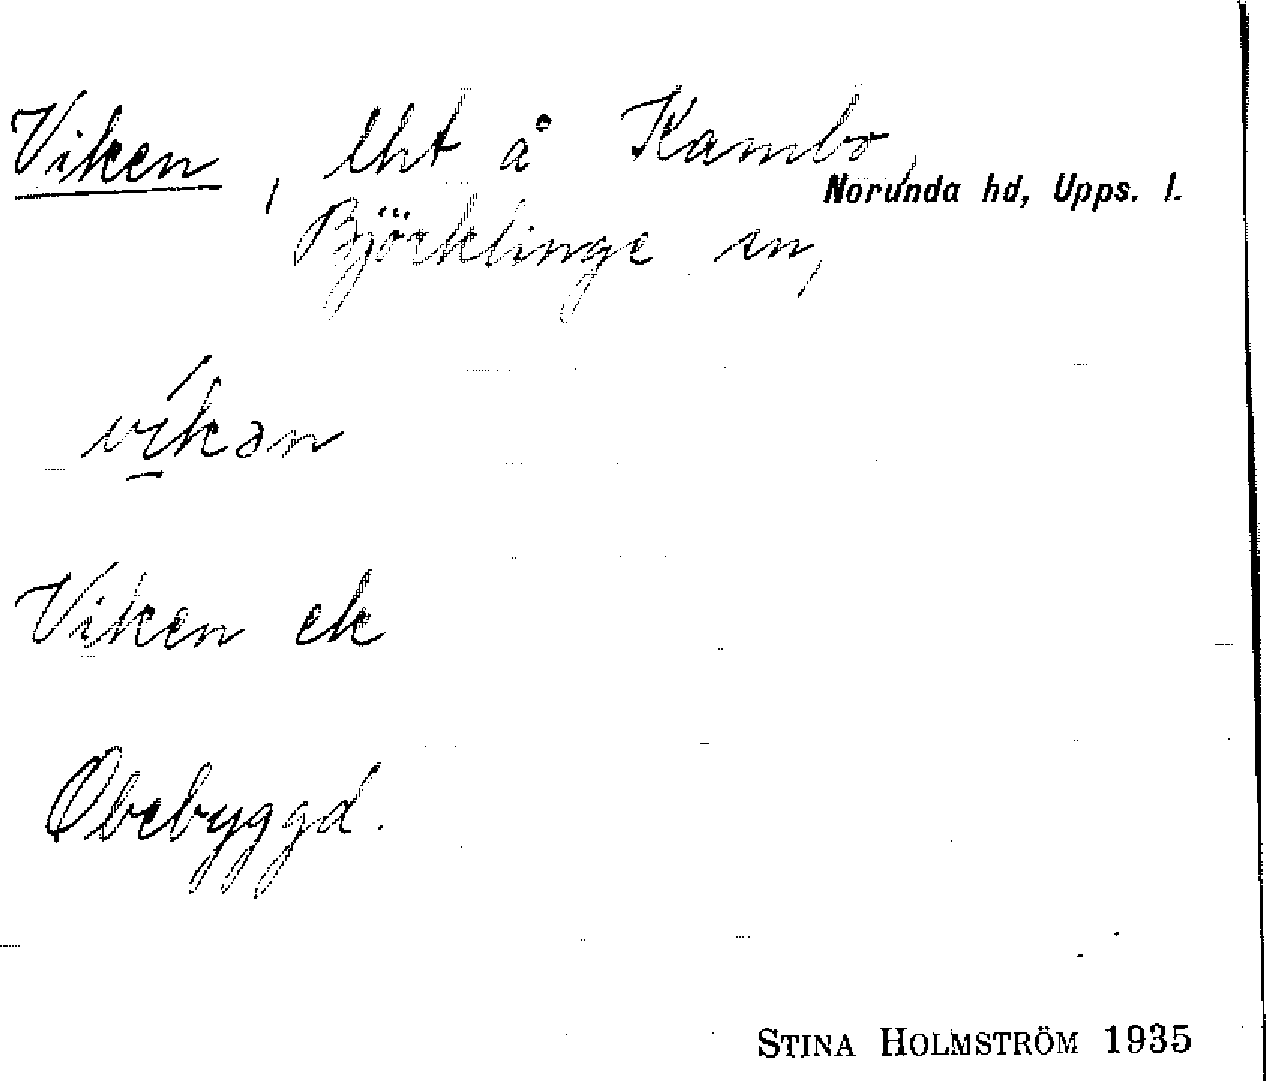 Viken, lht å Kambo,
Norunda hd, Upps. l.
Björklinge sn,
víkən
Viken ek
Obebyggd.
STINA HOLMSTRÖM 1935